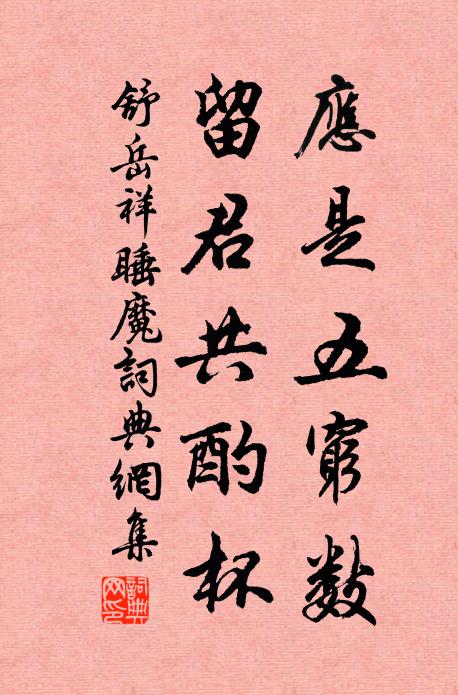 應是五窮數
留君共酌杯
舒岳祥睡魔詞典網集
詞典
网印